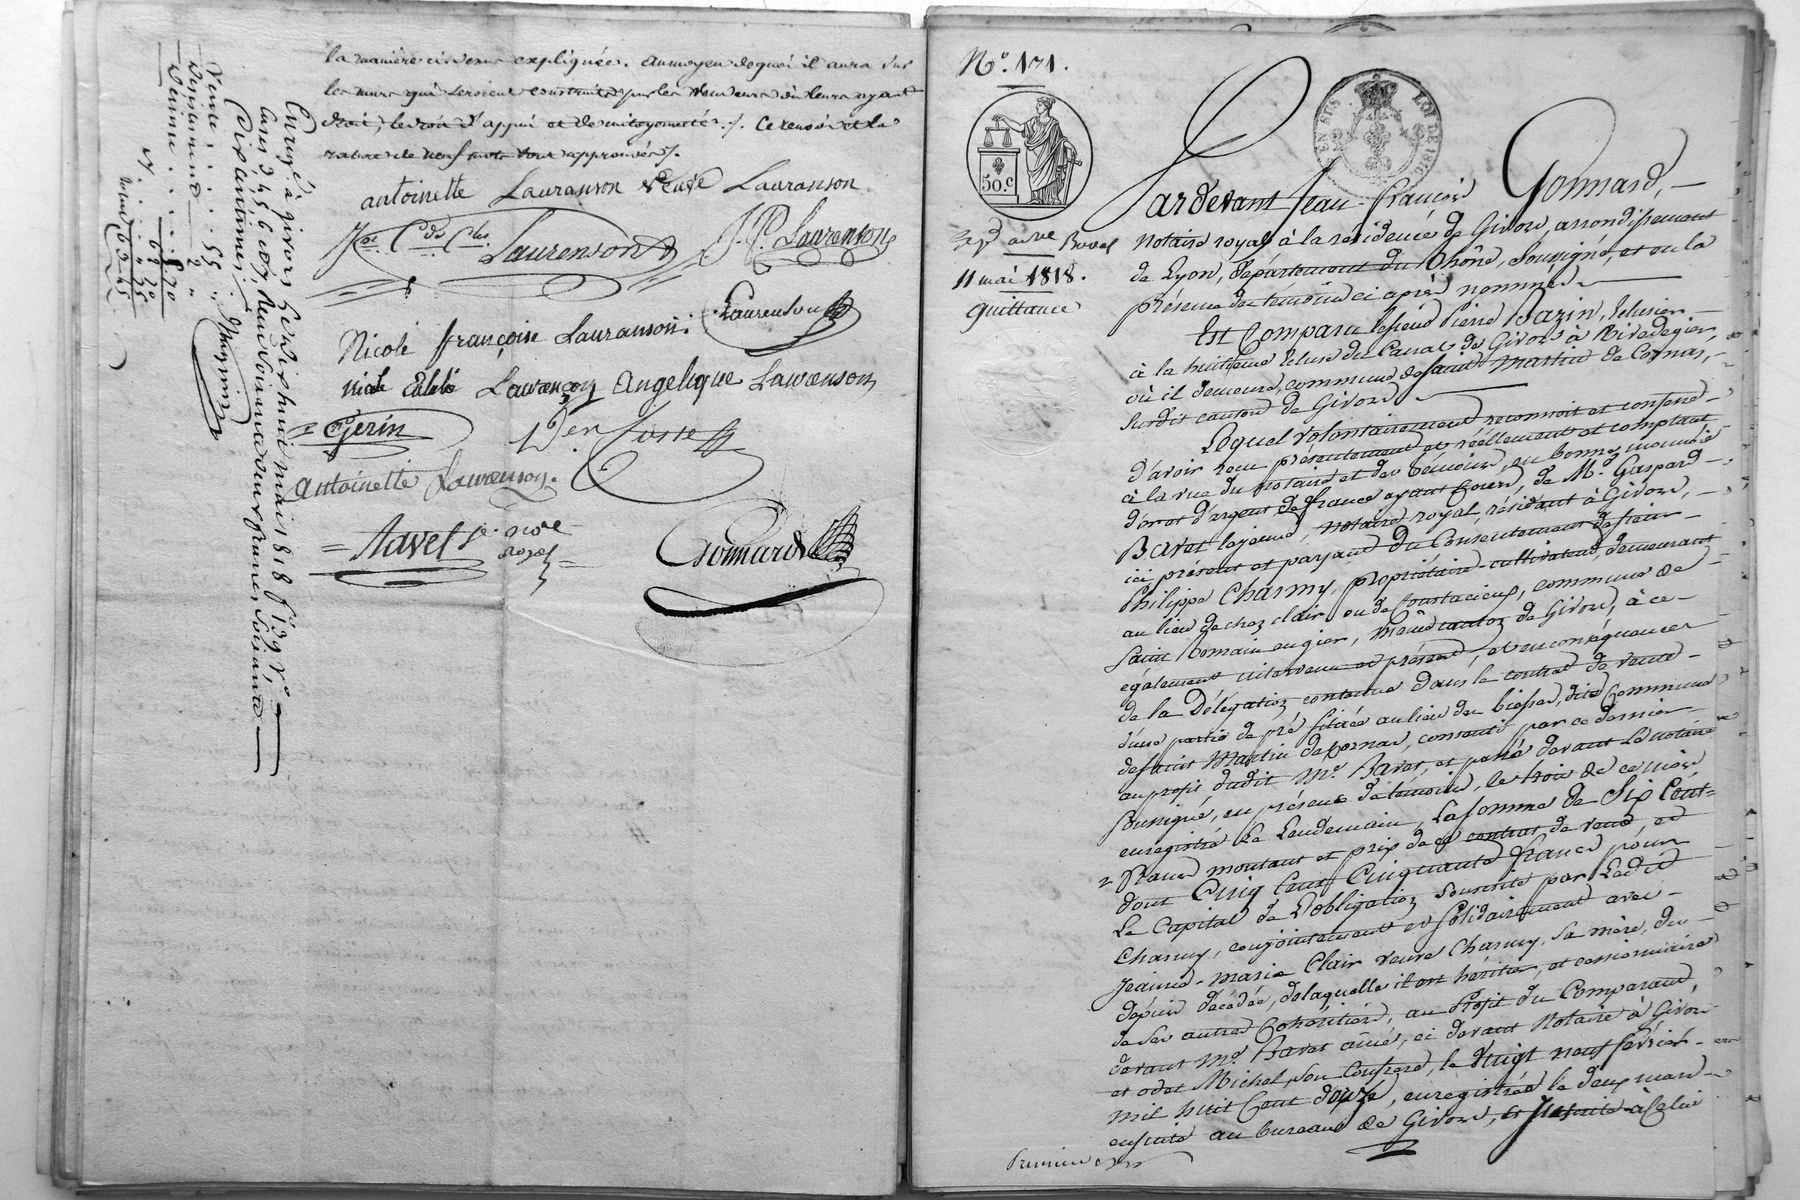 la manière ci dessus expliquée. Au moyen de quoi il aura sur
les murs qui seroient construits par les vendeurs ou leurs ayant
droit, le droit d'appui et de mitoyenneté ./. Ce renvoi et la
rature de neuf mots sont approuvés ./.
antoinette Lauranson veuve Lauranson
Laurenson
J. P. Laurenson
Laurenson
Nicole françoise Lauranson
Lawrençon Angelique Lawrenson
Gerin
Antoinette Lawrenson.
Navet
Gonnard
Enregé à givors le dix huit mai 1818 f° 139 v°
cases 3 4 5 6 et 7, Reçu Soixante deux francs, Soixante
Dix centimes.
Vente 55 "
N°. 171.
50.c
11 mai 1818.
Quittance
EN SUS
LOI DE 1816
Pardevant Jean-françois Gonnard,
notaire royal à la résidence de Givors, arrondissement
de Lyon, département du Rhône, soussigné, et en la
présence des témoins ci après nommés
Est Comparu le sieur Pierre Bazin, éclusier
à la huitième écluse du Canal de Givors à Rivedegier,
où il demeure, commune de saint martin de Cornas,
susdit canton de Givors
Lequel volontairement reconnoit et confesse
d'avoir reçu présentement et réellement et comptant
à la vue du notaire et des témoins, en bonnes monnoies
d'or et d'argent de france ayant Cours, de Me. Gaspard
Bavet le jeune, notaire royal, résidant à Givors,
ici présent et payant du Consentement de sieur
Philippe Charmy, propriétaire-cultivateur, demeurant
au lieu de chez clair ou de Coustacieux, commune de
Saint Romain en gier, même canton de Givors, à ce
également intervenu et présent, et en conséquence
de la Délégation contenue dans le contrat de vente
d'une partie de pré située au lieu des biesses, dite Commune
de saint Martin de Cornas, consenti par ce dernier
au profit dudit Me. Bavet, et passé devant Le notaire
soussigné, en présence de témoins, le trois de ce mois
enregistré le Lendemain, la somme de Six Cent
francs montant et prix de ce contrat de vente, et
dont Cinq Cent Cinquante francs pour
le Capital de l'obligation souscrite par Ledit
Charmy, conjointement et solidairement avec
Jeanne-marie Clair veuve Charmy, sa mère, du
depuis décédée, de laquelle il est héritier, et cessionnaire
de ses autres Cohéritiers, au Profit du Comparant,
devant Me. Bavet aîné, ci devant Notaire à Givors
et odet Michel son Confrère, le vingt neuf février
mil huit Cent douze, enregistrée le deux mars
ensuite au bureau de Givors, et ensuite à Celui